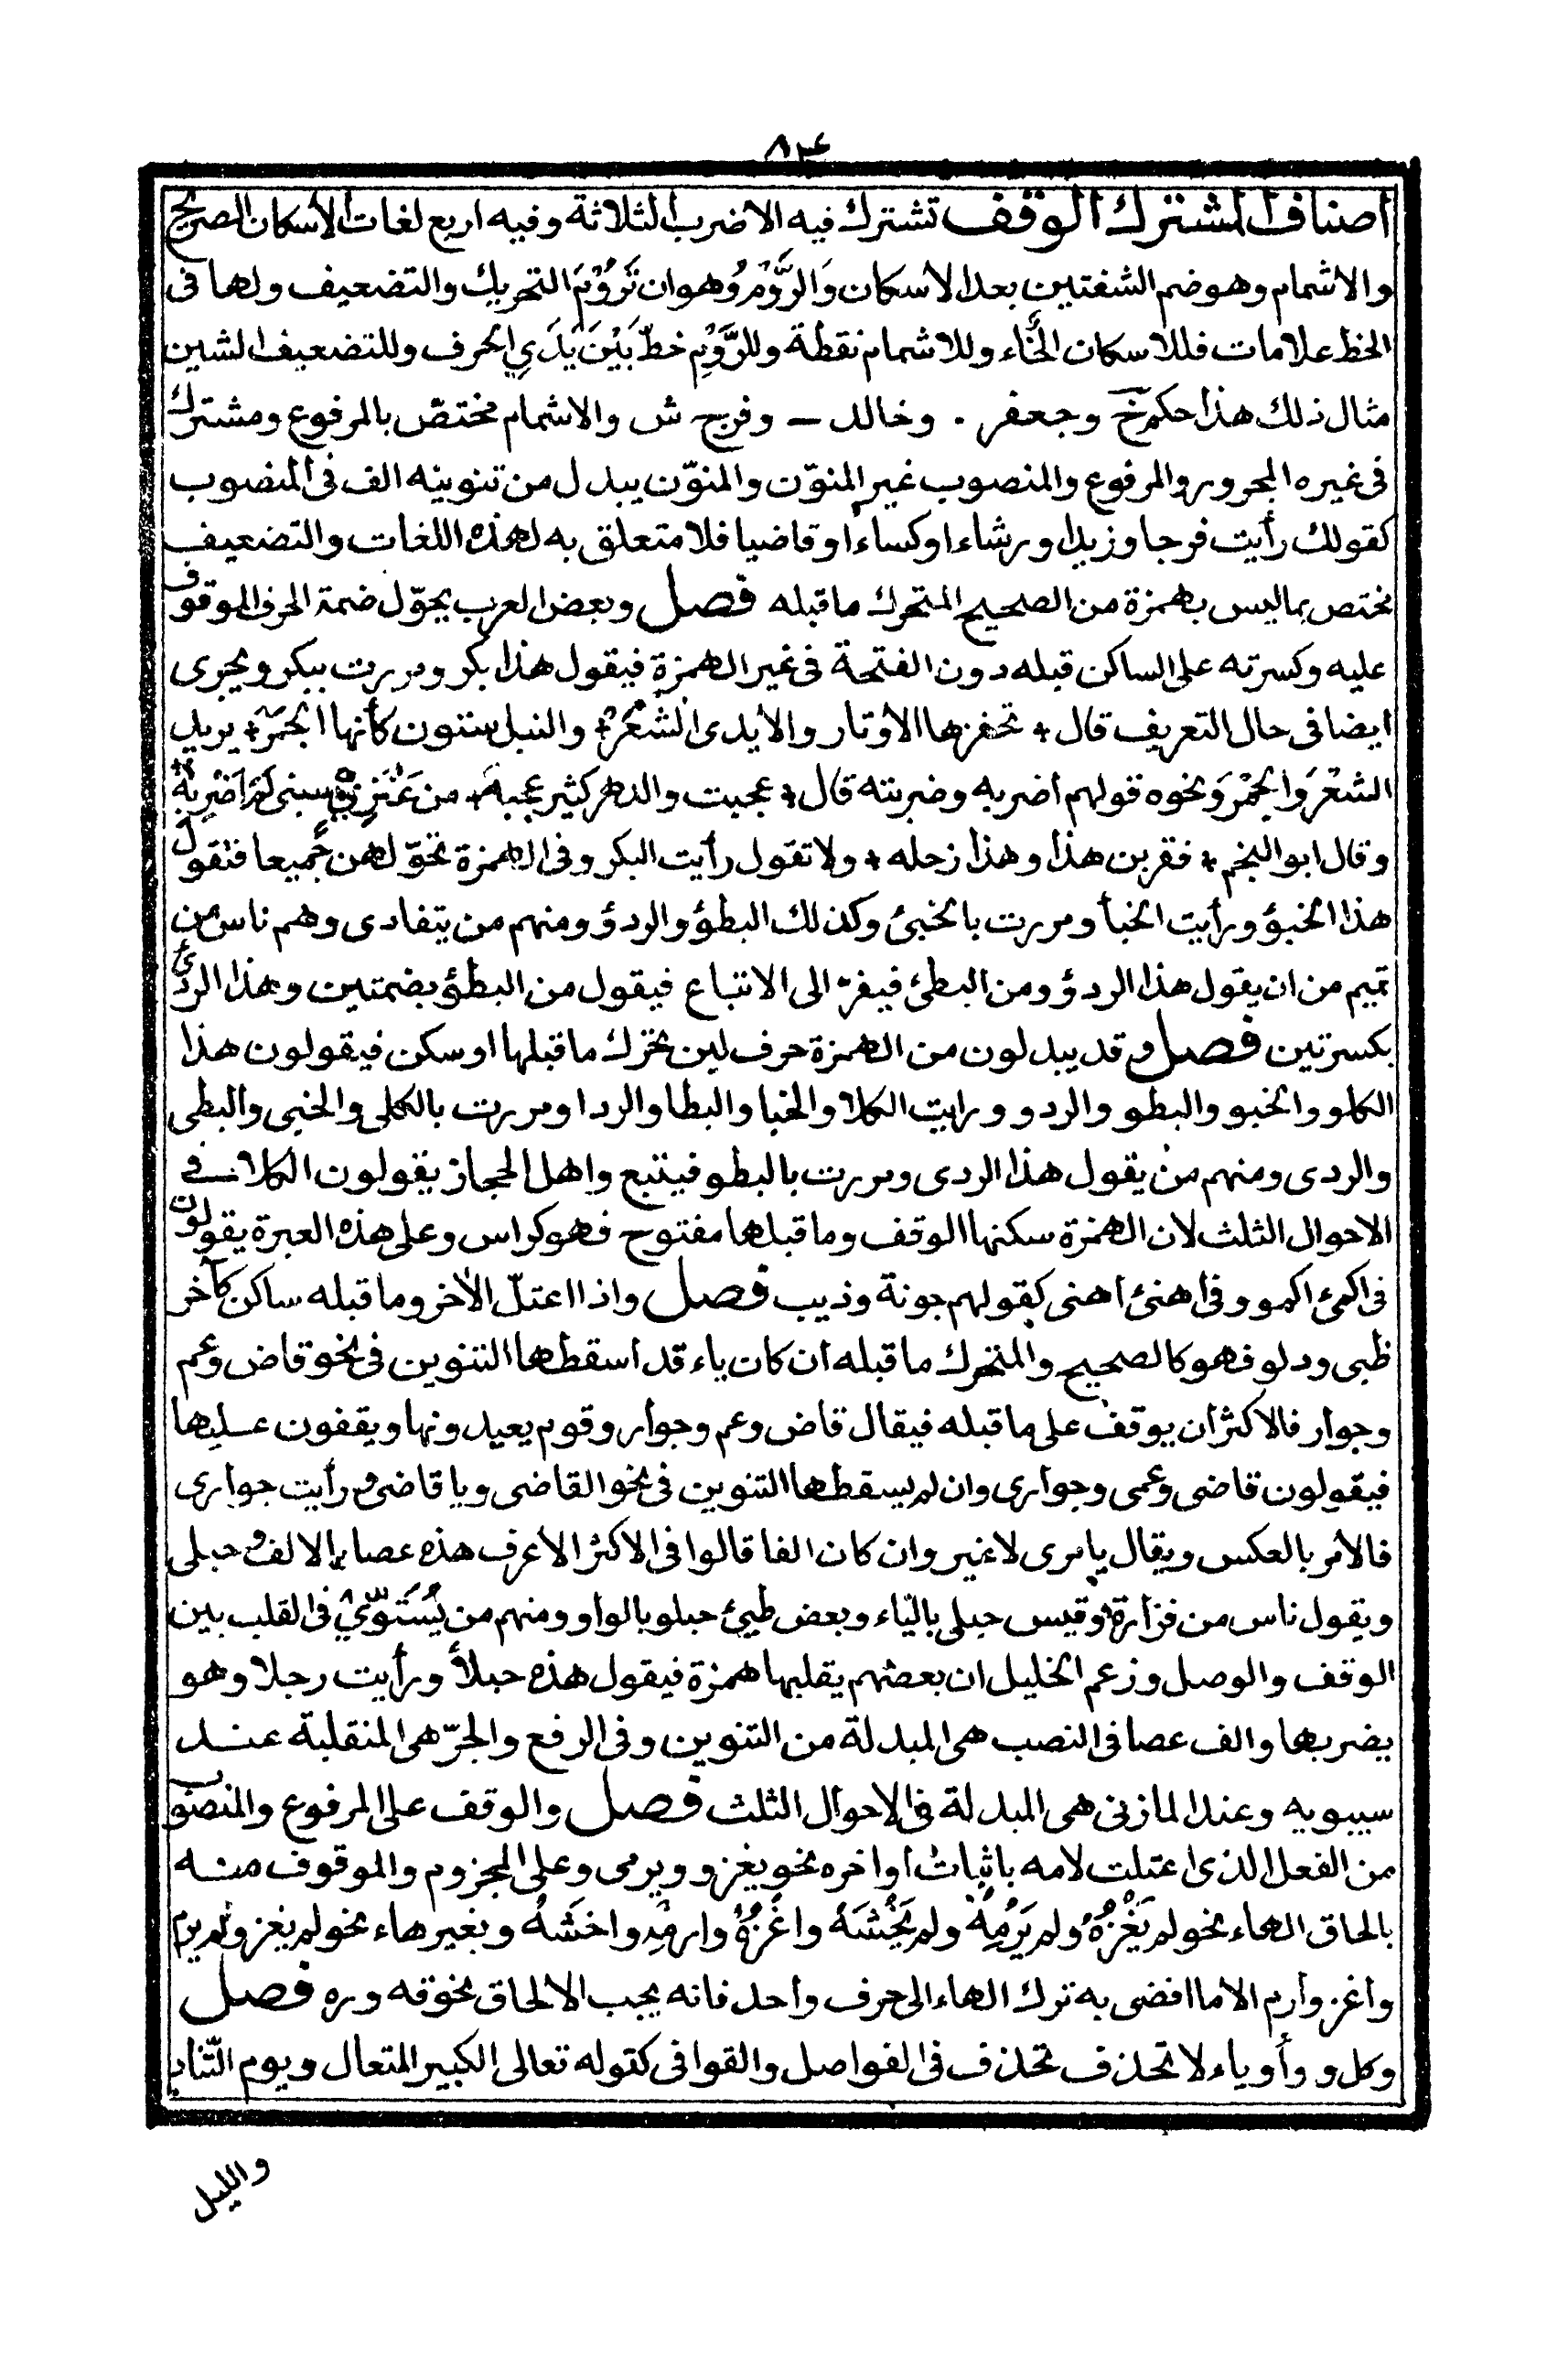 ٨٣٤
اصناف المشترك الوقف تشترك فيه الاضرب الثلاثة وفيه اربع لغات الأسكان الصريح
والاشمام وهو ضم الشفتين بعد الاسكان وَالرَّوْمُ وهو ان تَرُوْمَ التحريك والتضعيف ولها فى
الخط علامات فللاسكان الخاء وللاشمام نقطة وللرَّوْمِ خطّ بَيْنَ يَدَيِ الحرف وللتضعيف الشين
مثال ذلك هذا حكمْ خ وجعفر ۰ وخالد ــ وفرج ش والاشمام مختصّ بالمرفوع ومشترك
فى غيره المجرور والمرفوع والمنصوب غير المنوّن والمنوّن يبدل من تنوينه الف فى المنصوب
كقولك رأيت فرجا وزيدا ورشاءا وكساءا وقاضيا فلا متعلق به لهذه اللغات والتضعيف
مختص بما ليس بهمزة من الصحيح المتحرك ما قبله فصل وبعض العرب يحوّل ضمة الحرف الموقوف
عليه وكسرته على الساكن قبله دون الفتحة فى غير الهمزة فيقول هذا بكر ومررت ببكر ويجرى
ايضا فى حال التعريف قال + تحفزها الاوتار والأيدى الشُّعُرْ + والنبل ستون كأنها الجَمَرْ + يريد
الشعْرَ وَالجَمْرَ ونحوه قولهم اضربه وضربته قال + عجبت والدهر كثير عجبه + من عَنَزِيٍّ سبنى لَمْ اَضْرِبُهْ
وقال ابو النجم + فقربن هذا وهذا زحله + ولا تقول رأيت البكر وفى الهمزة تحوّلهن جميعا فتقول
هذا الخبؤ ورأيت الخبأ ومررت بالخبئ وكذلك البطؤ والردؤ ومنهم من يتفادى وهم ناس من
تميم من ان يقول هذا الردؤ ومن البطئ فيفرّ الى الاتباع فيقول من البطؤ بضمتين وهذا الردئ
بكسرتين فصل وقد يبدلون من الهمزة حرف لين تحرك ما قبلها او سكن فيقولون هذا
الكلو والخبو والبطو والردو ورايت الكلا والخبا والبطا والردا ومررت بالكلى والخبى والبطى
والردى ومنهم من يقول هذا الردى ومررت بالبطو فيتبع واهل الحجاز يقولون الكلا فى
الاحوال الثلث لان الهمزة سكنها الوقف وما قبلها مفتوح فهو كراس وعلى هذه العبرة يقولون
فى اكمئ اكمو وفى اهنئ اهنى كقولهم جونة وذيب فصل واذا اعتلّ الأخر وما قبله ساكن كآخر
ظبى ودلو فهو كالصحيح والمتحرك ما قبله ان كان ياء قد اسقطها التنوين فى نحو قاض وعم
وجوار فالاكثر ان يوقف على ما قبله فيقال قاض وعم وجوار وقوم يعيدونها ويقفون عليها
فيقولون قاضى وعمى وجوارى وان لم يسقطها التنوين فى نحو القاضى ويا قاضى ورأيت جوارى
فالأمر بالعكس ويقال يا مرى لا غير وان كان الفا قالوا فى الاكثر الأعرف هذه عصا بالالف وحبلى
ويقول ناس من فزارة وقيس حبلى بالياء وبعض طيئ حبلو بالواو ومنهم من يُسَوِّيْ فى القلب بين
الوقف والوصل وزعم الخليل ان بعضهم يقلبها همزة فيقول هذه حبلأ ورأيت رجلا وهو
يضربها والف عصا فى النصب هى المبدلة من التنوين وفى الرفع والجرّ هى المنقلبة عند
سيبويه وعند المازنى هى المبدلة فى الاحوال الثلث فصل والوقف على المرفوع والمنصوب
من الفعل الذى اعتلت لامه باثبات اواخره نحو يغزو ويرمى وعلى المجزوم والموقوف منه
بالحاق الهاء نحو لم يَغْزُهْ ولم يَرْمِهْ ولم يَخْشَهْ واغْزُهْ وارمِهْ واخشَهْ وبغير هاء نحو لم يغز ولم يرم
واغز وارم الا ما افضى به ترك الهاء الى حرف واحد فانه يجب الالحاق نحو قه وره فصل
وكل واو وياء لا تحذف تحذف فى الفواصل والقوافى كقوله تعالى الكبير المتعال ويوم التّناد
والليل